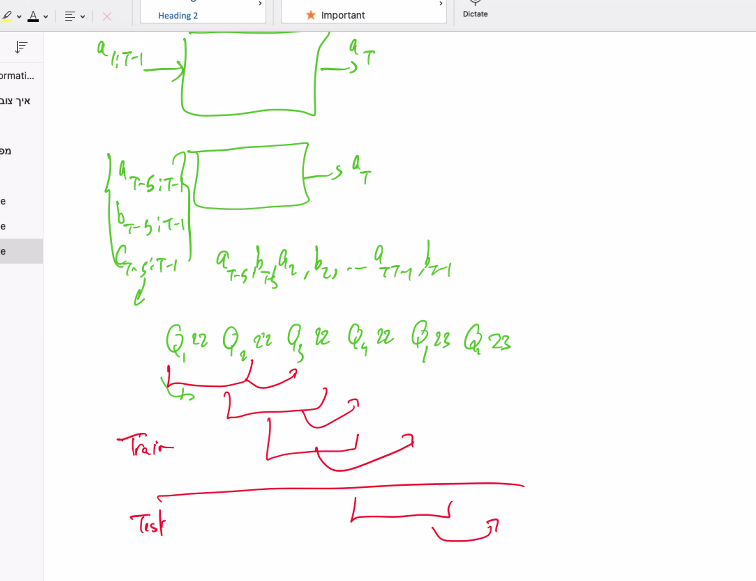 Heading 2
Important
Dictate
a 1:T-1
a T
ormati...
איך צוב
a T-5:T-1
a T
b T-5:T-1
C T-5:T-1
a T-5, b T-5, a 2, b 2, ... a T-1, b T-1
Q1 22 Q2 22 Q3 22 Q4 22 Q1 23 Q2 23
Train
Test